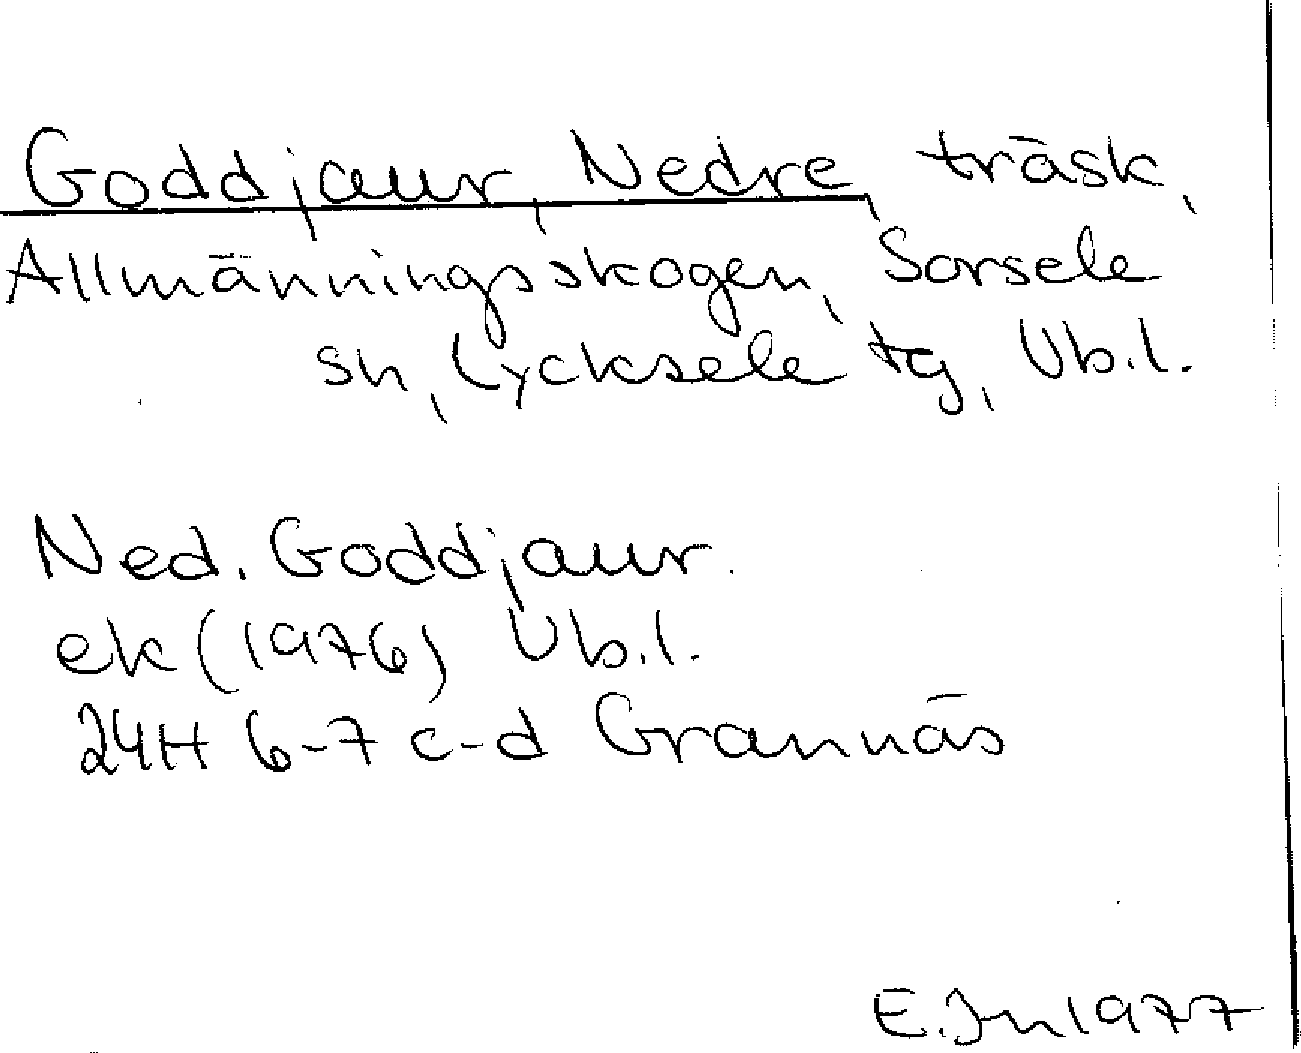 Goddjaur, Nedre, träsk,
Allmänningsskogen, Sorsele
sn, Lycksele tg, Vb.l.
Ned. Goddjaur
ek (1976) Vb.l.
24H 6-7 c-d Grannäs
E. Jn 1977